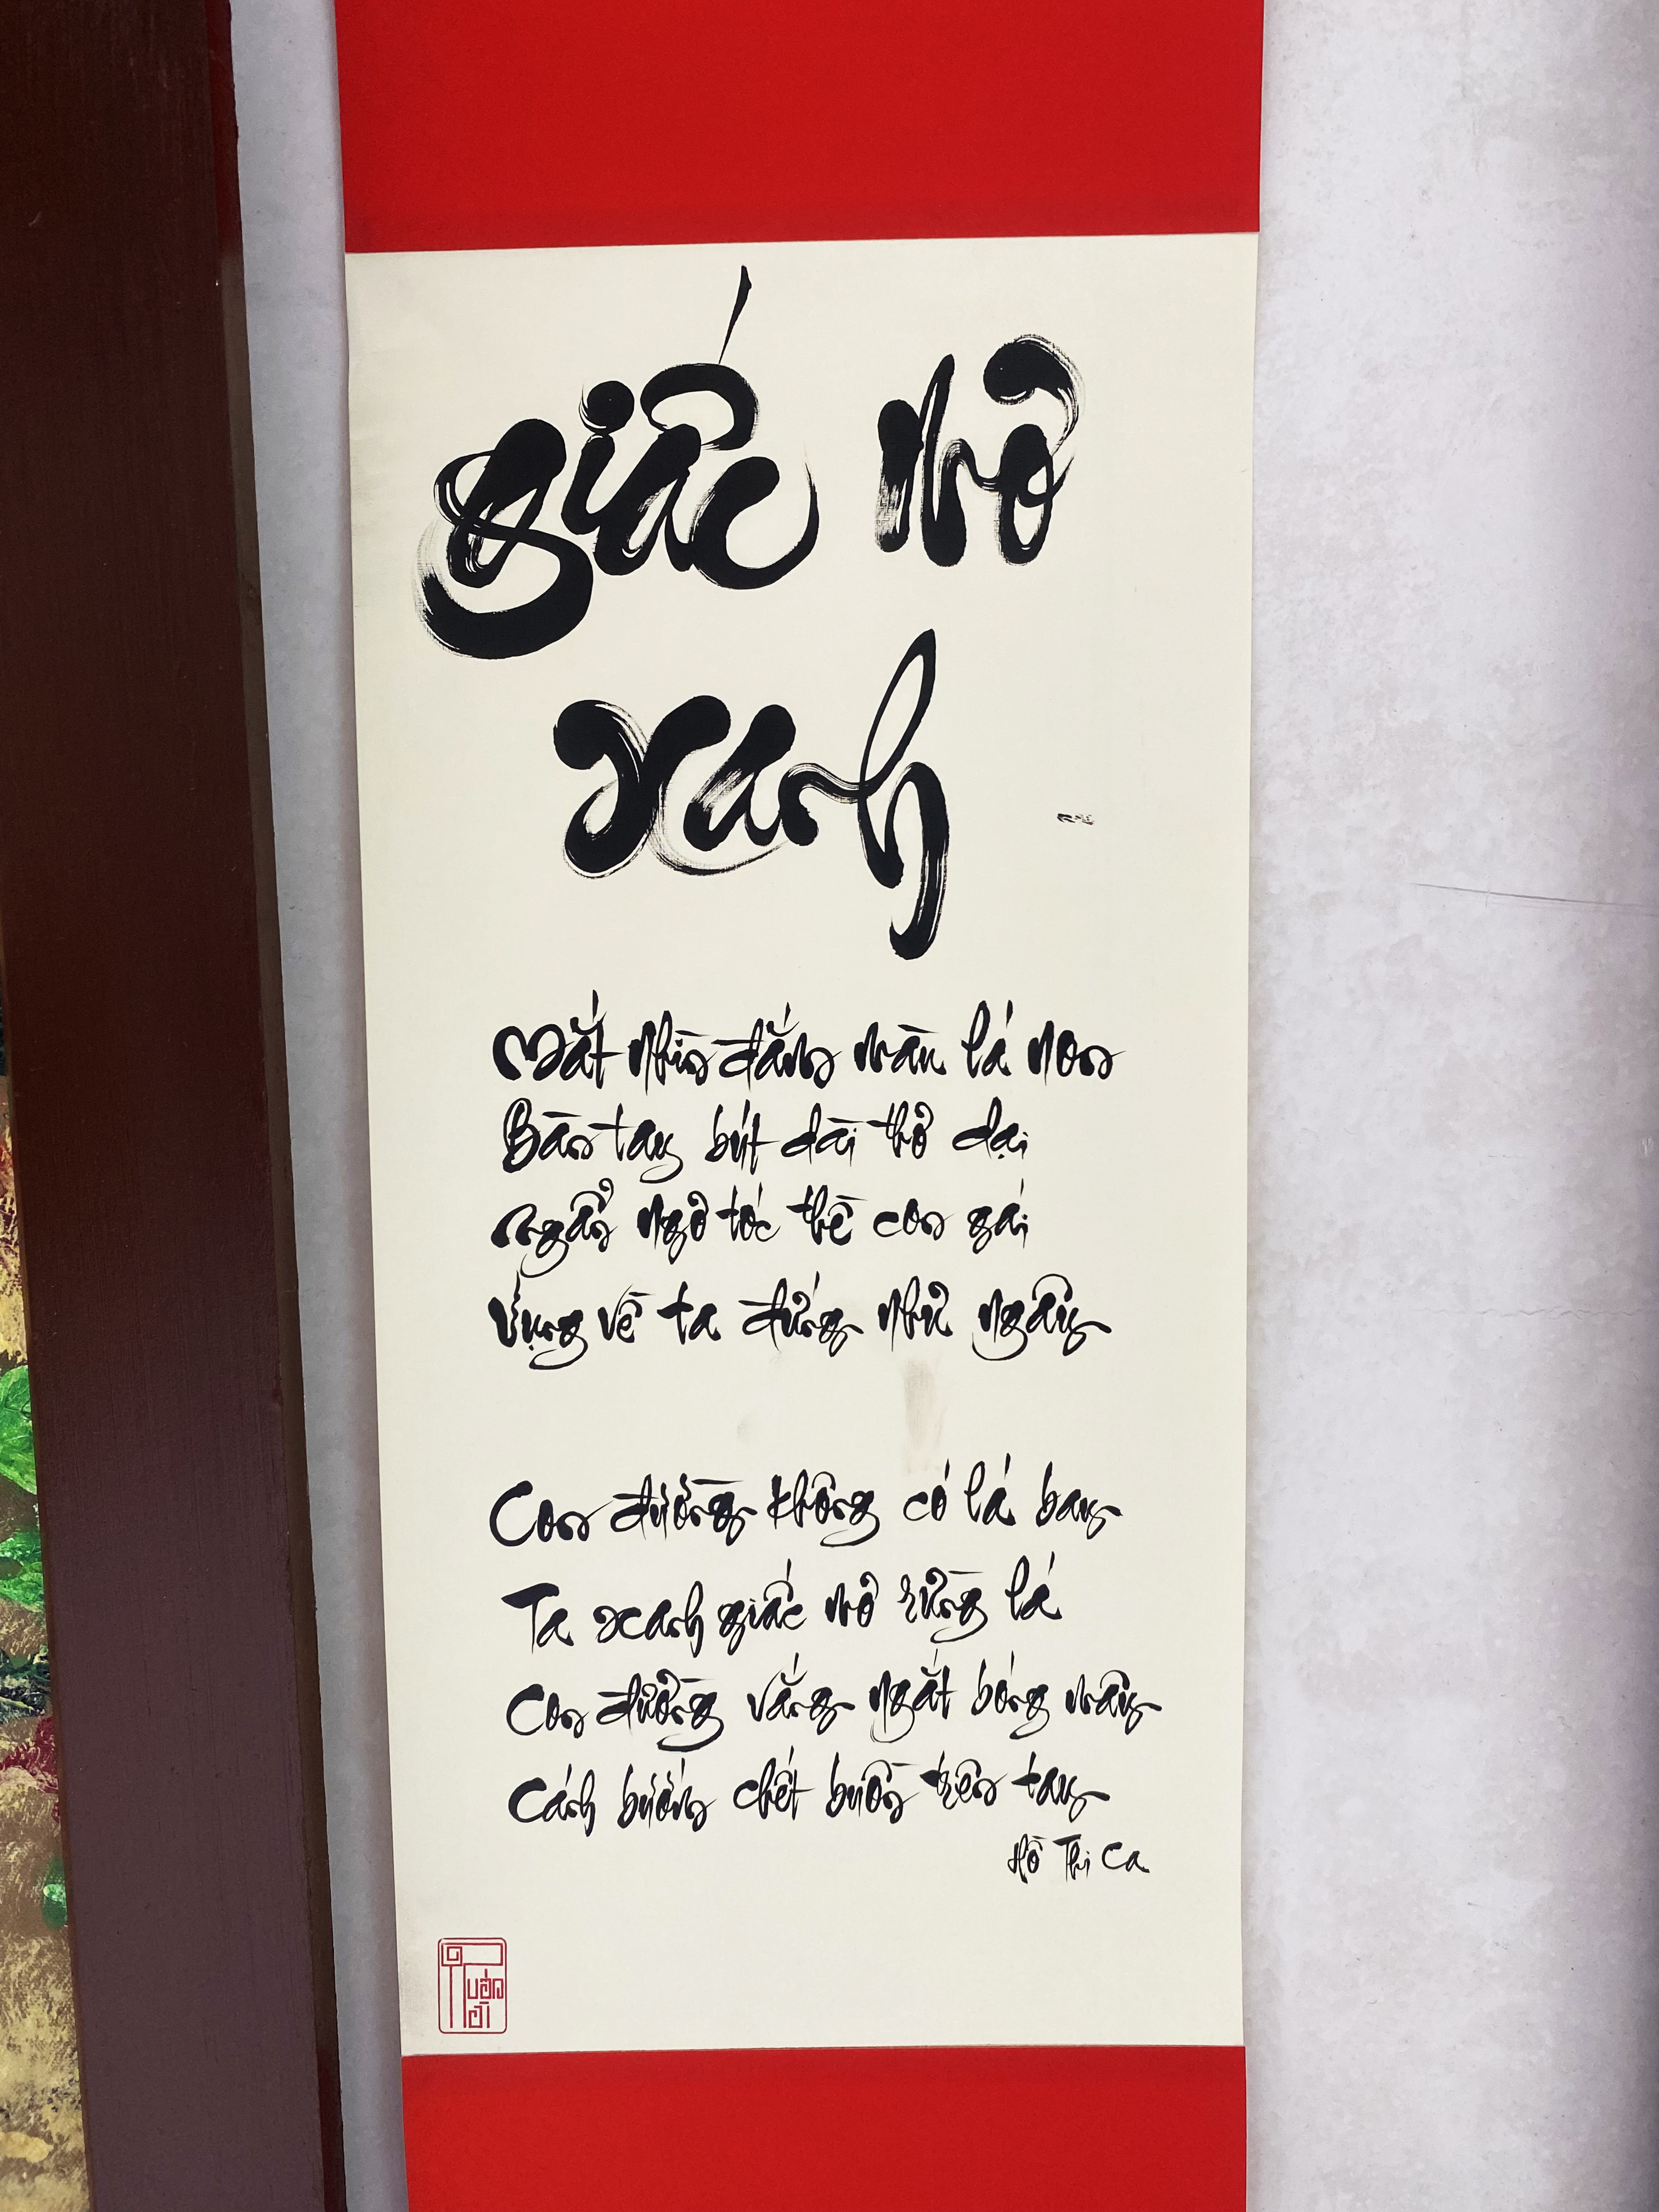 giấc mơ
xanh
Mắt nhìn đắng màu lá non
Bàn tay bút dài thơ dại
Ngẩn ngơ tóc thề con gái
Vụng về ta đứng như ngây
Con đường không có lá bay
Ta xanh giấc mơ rừng lá
Con đường vắng ngắt bóng mây
Cánh bướm chết buồn trên tay
Hồ Thi Ca